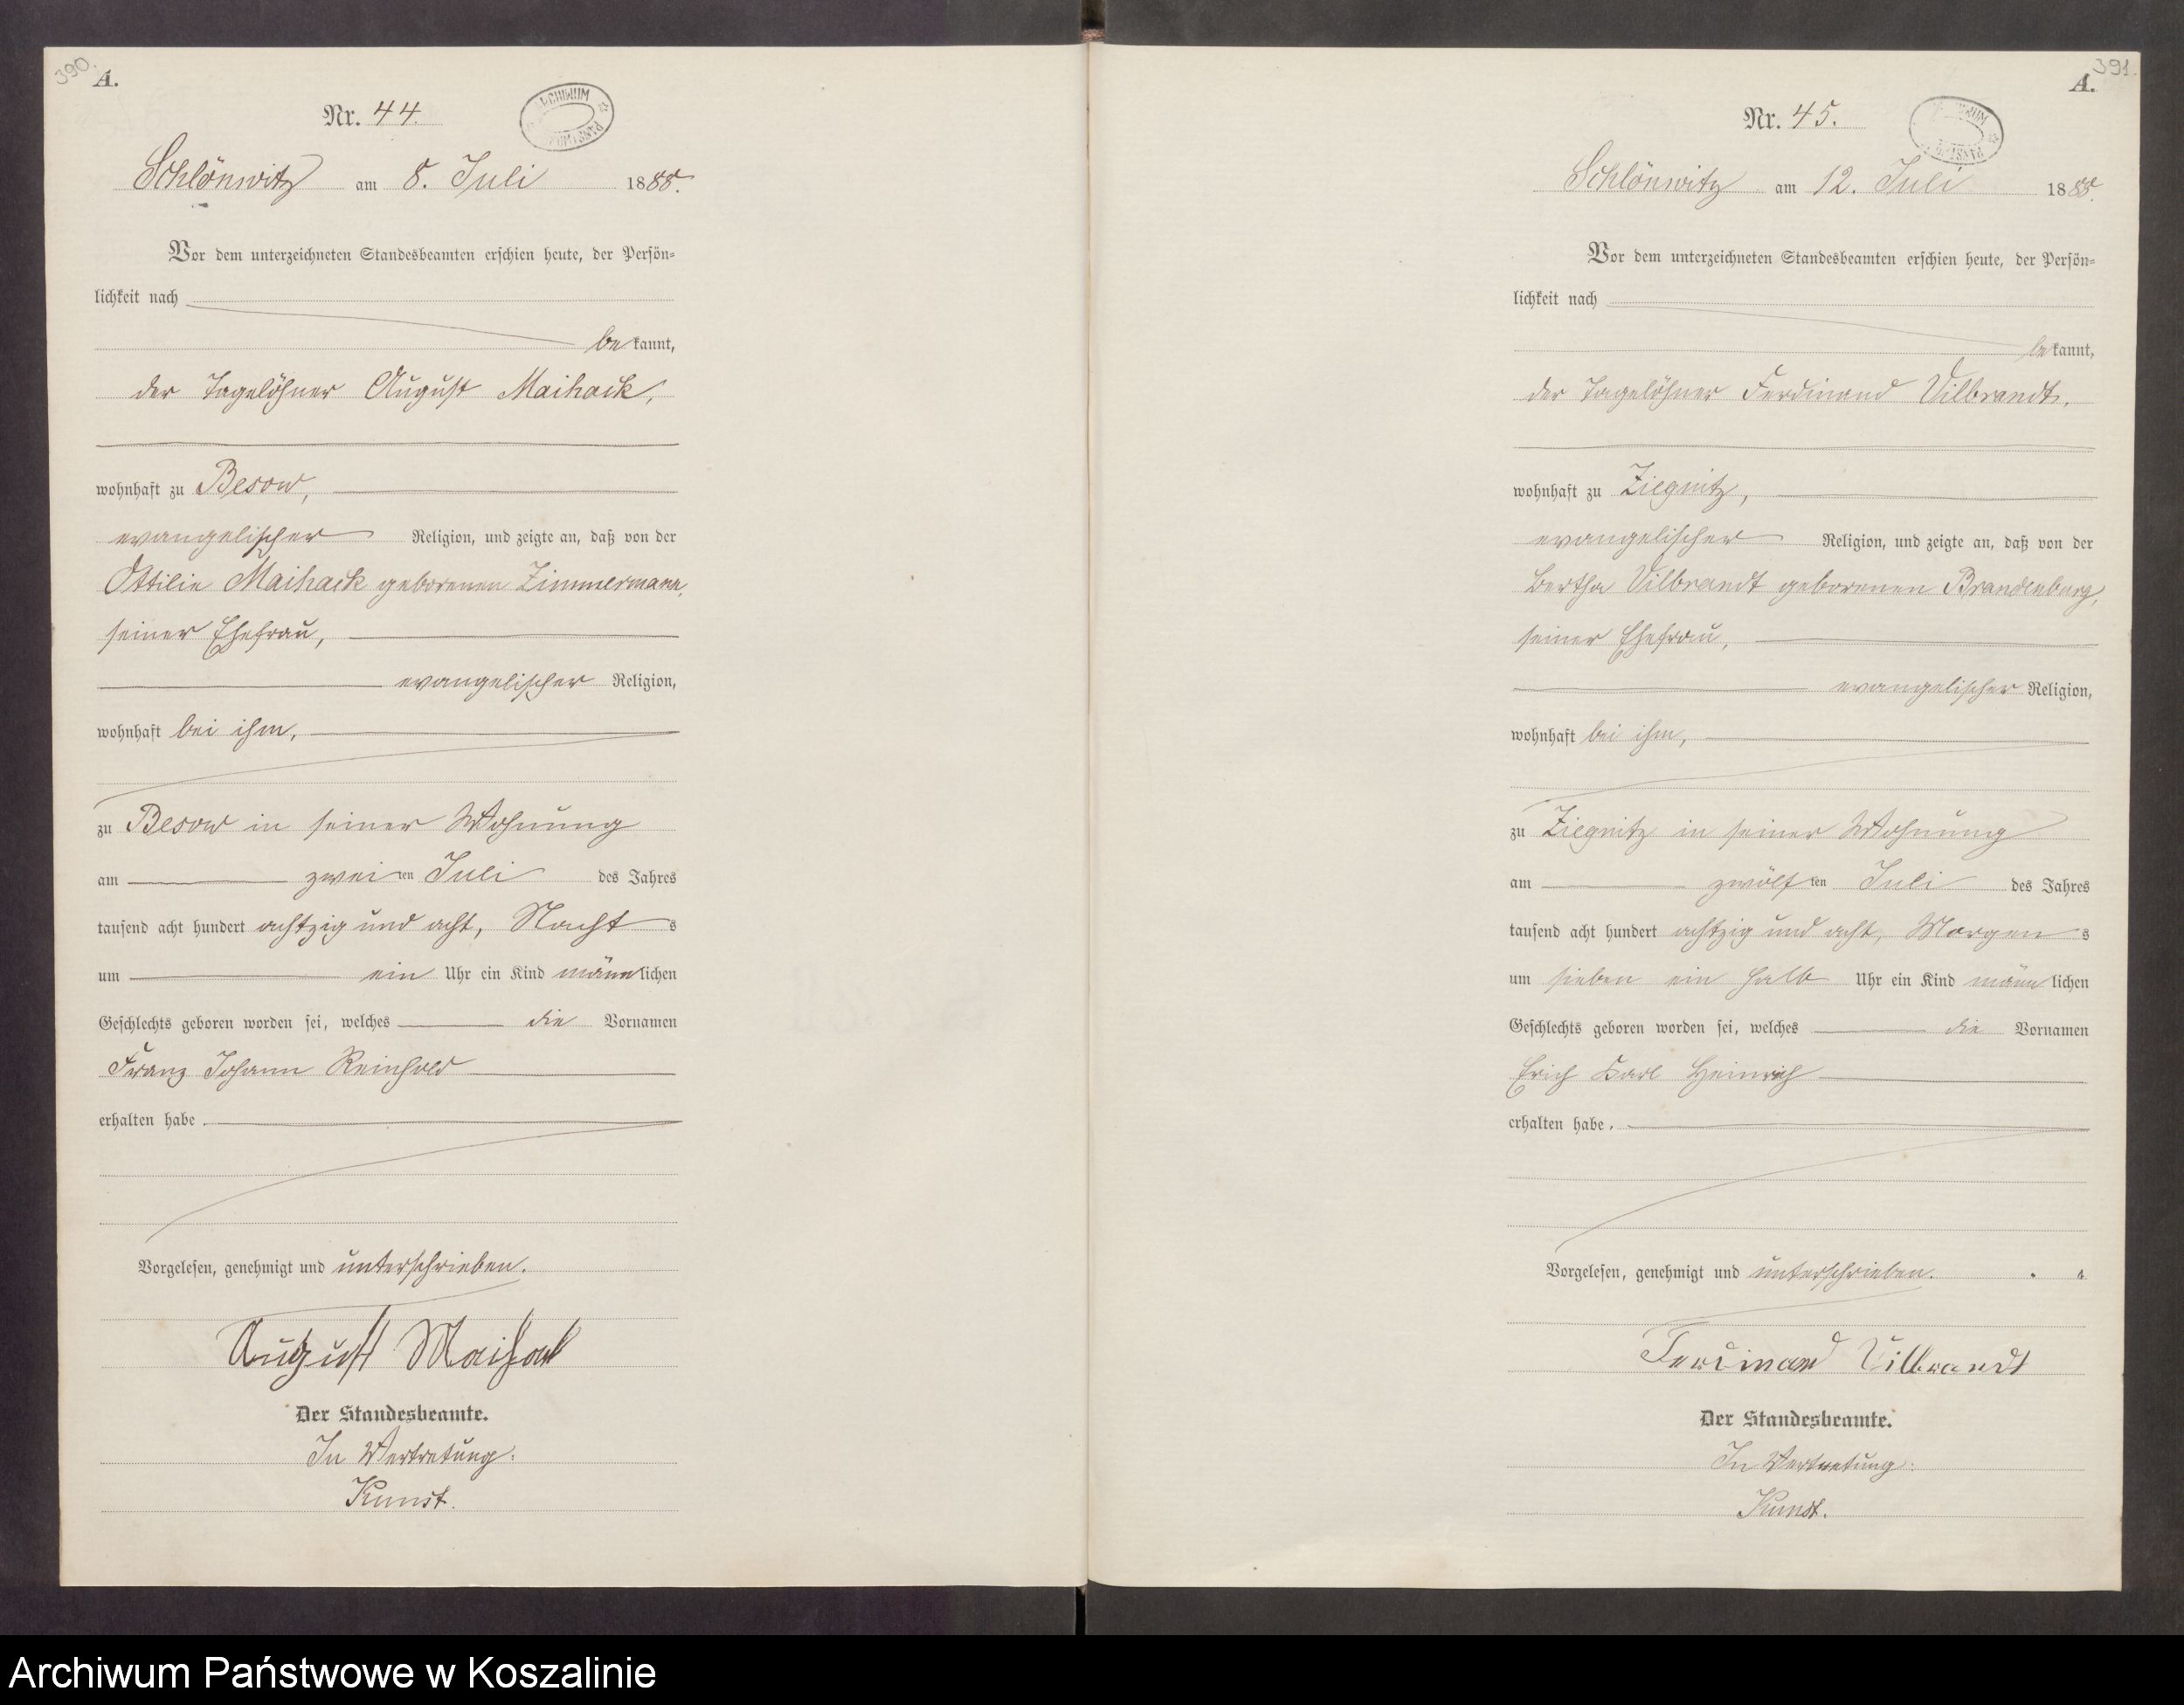 390.
A.
Nr. 44.
ARCHIWUM
Schlönwitz am 8. Juli 1888.
Vor dem unterzeichneten Standesbeamten erschien heute, der Persön-
lichkeit nach
bekannt,
der Tagelöhner August Maihack,
wohnhaft zu Besow,
evangelischer Religion, und zeigte an, daß von der
Ottilie Maihack geborenen Zimmermann,
seiner Ehefrau,
evangelischer Religion,
wohnhaft bei ihm,
zu Besow in seiner Wohnung
am zweiten Juli des Jahres
tausend acht hundert achtzig und acht, Nachts
um ein Uhr ein Kind männlichen
Geschlechts geboren worden sei, welches die Vornamen
Franz Johann Reinhold
erhalten habe.
Vorgelesen, genehmigt und unterschrieben.
August Maihack
Der Standesbeamte.
In Vertretung:
Kunst.
391.
A.
Nr. 45.
Schlönwitz am 12. Juli 1888.
Vor dem unterzeichneten Standesbeamten erschien heute, der Persön-
lichkeit nach
bekannt,
der Tagelöhner Ferdinand Vilbrandt,
wohnhaft zu Ziegnitz,
evangelischer Religion, und zeigte an, daß von der
Bertha Vilbrandt geborenen Brandenburg,
seiner Ehefrau,
evangelischer Religion,
wohnhaft bei ihm,
zu Ziegnitz in seiner Wohnung
am zwölften Juli des Jahres
tausend acht hundert achtzig und acht, Morgens
um sieben ein halb Uhr ein Kind männlichen
Geschlechts geboren worden sei, welches die Vornamen
Erich Karl Heinrich
erhalten habe.
Vorgelesen, genehmigt und unterschrieben.
Ferdinand Vilbrandt
Der Standesbeamte.
In Vertretung:
Kunst.
Archiwum Państwowe w Koszalinie